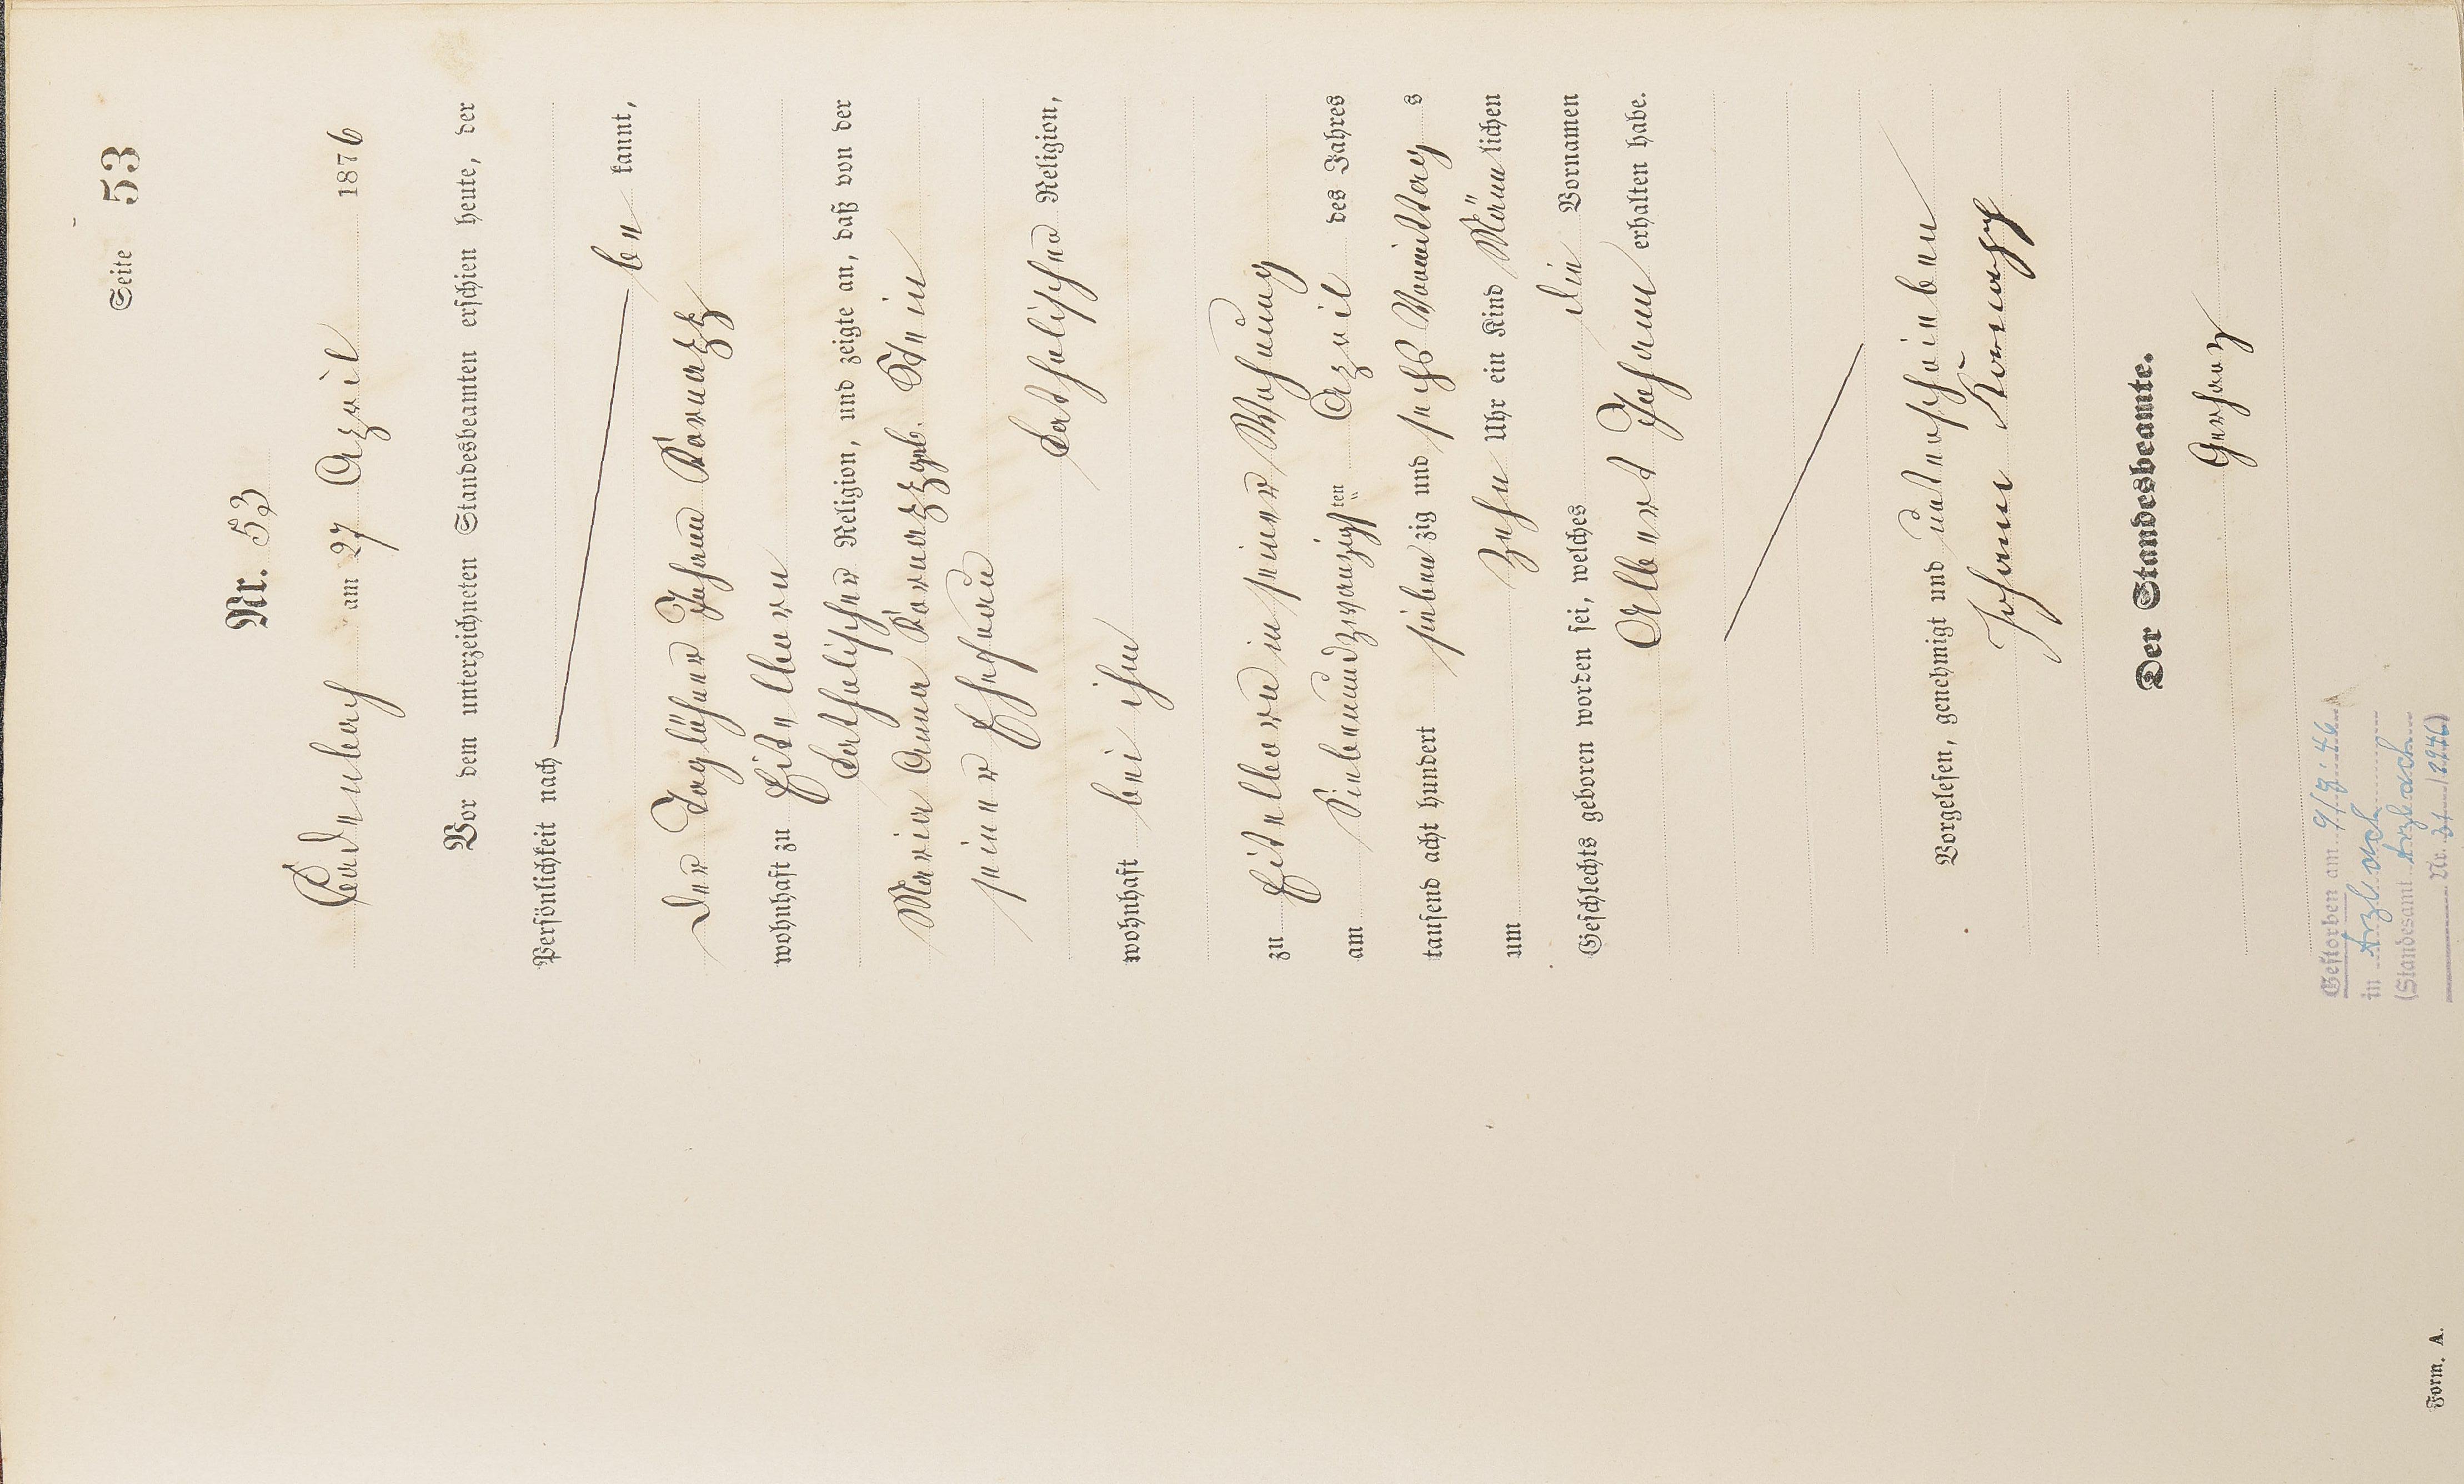 Seite 53
Nr. 53
Cadenbach am 27 April 1876
Vor dem unterzeichneten Standesbeamten erschien heute, der
Persönlichkeit nach
be kannt,
der Taglöhner Johann Kornapp
wohnhaft zu Eitelborn
katholischer Religion, und zeigte an, daß von der
Maria Anna Kornapp geb. Stein
seiner Ehefrau
katholischer Religion,
wohnhaft bei ihm
zu Eitelborn in seiner Wohnung
am Siebenundzwanzigsten April des Jahres
tausend acht hundert siebenzig und sechs Vormittags
um Zehn Uhr ein Kind Männlichen
Geschlechts geboren worden sei, welches die Vornamen
Albert Johann erhalten habe.
Vorgelesen, genehmigt und unterschrieben
Johann Kornapp
Der Standesbeamte.
Gerharz
Gestorben am 9/3.46
in Arzbach
(Standesamt Arzbach
Nr. 1946)
Form. A.